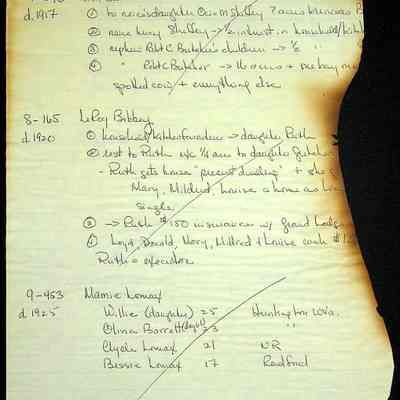 d.1917 ① to niece's daughter Owen M Shelley 7 acres
② niece Lucy Shelley → 1/2 interest in household/kitchen
③ nephew Robt C Butcher's children → 1/2
④ " Robt C Butcher → 16 acres + one bay ma
spotted cow + everything else
8-165 LeRoy Bibbey
d.1920 ① household/kitchen furniture → daughter Ruth
② rest to Ruth exc 1/4 acre to daughter
- Ruth gets house "present dwelling" + she g
Mary, Mildred, Louise a home as lon
single
③ → Ruth $150 insurance w/ Grand Lodge
④ Loyd, Donald, Mary, Mildred + Louise each $1
Ruth = executrix
9-453 Mamie Lomax
d 1925 Willie (daughter) 25 Huntington W.Va.
Olivia Barrett (daught) 23 "
Clyde Lomax 21 NR
Bessie Lomax 17 Radford